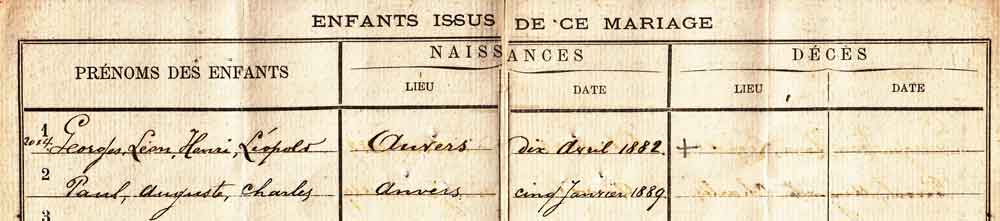 ENFANTS ISSUS DE CE MARIAGE
PRÉNOMS DES ENFANTS NAISSANCES DÉCÈS
LIEU DATE LIEU DATE
1 Georges, Léon, Henri, Léopold Anvers dix Avril 1882. +
2 Paul, Auguste, Charles Anvers cinq Janvier 1889.
3